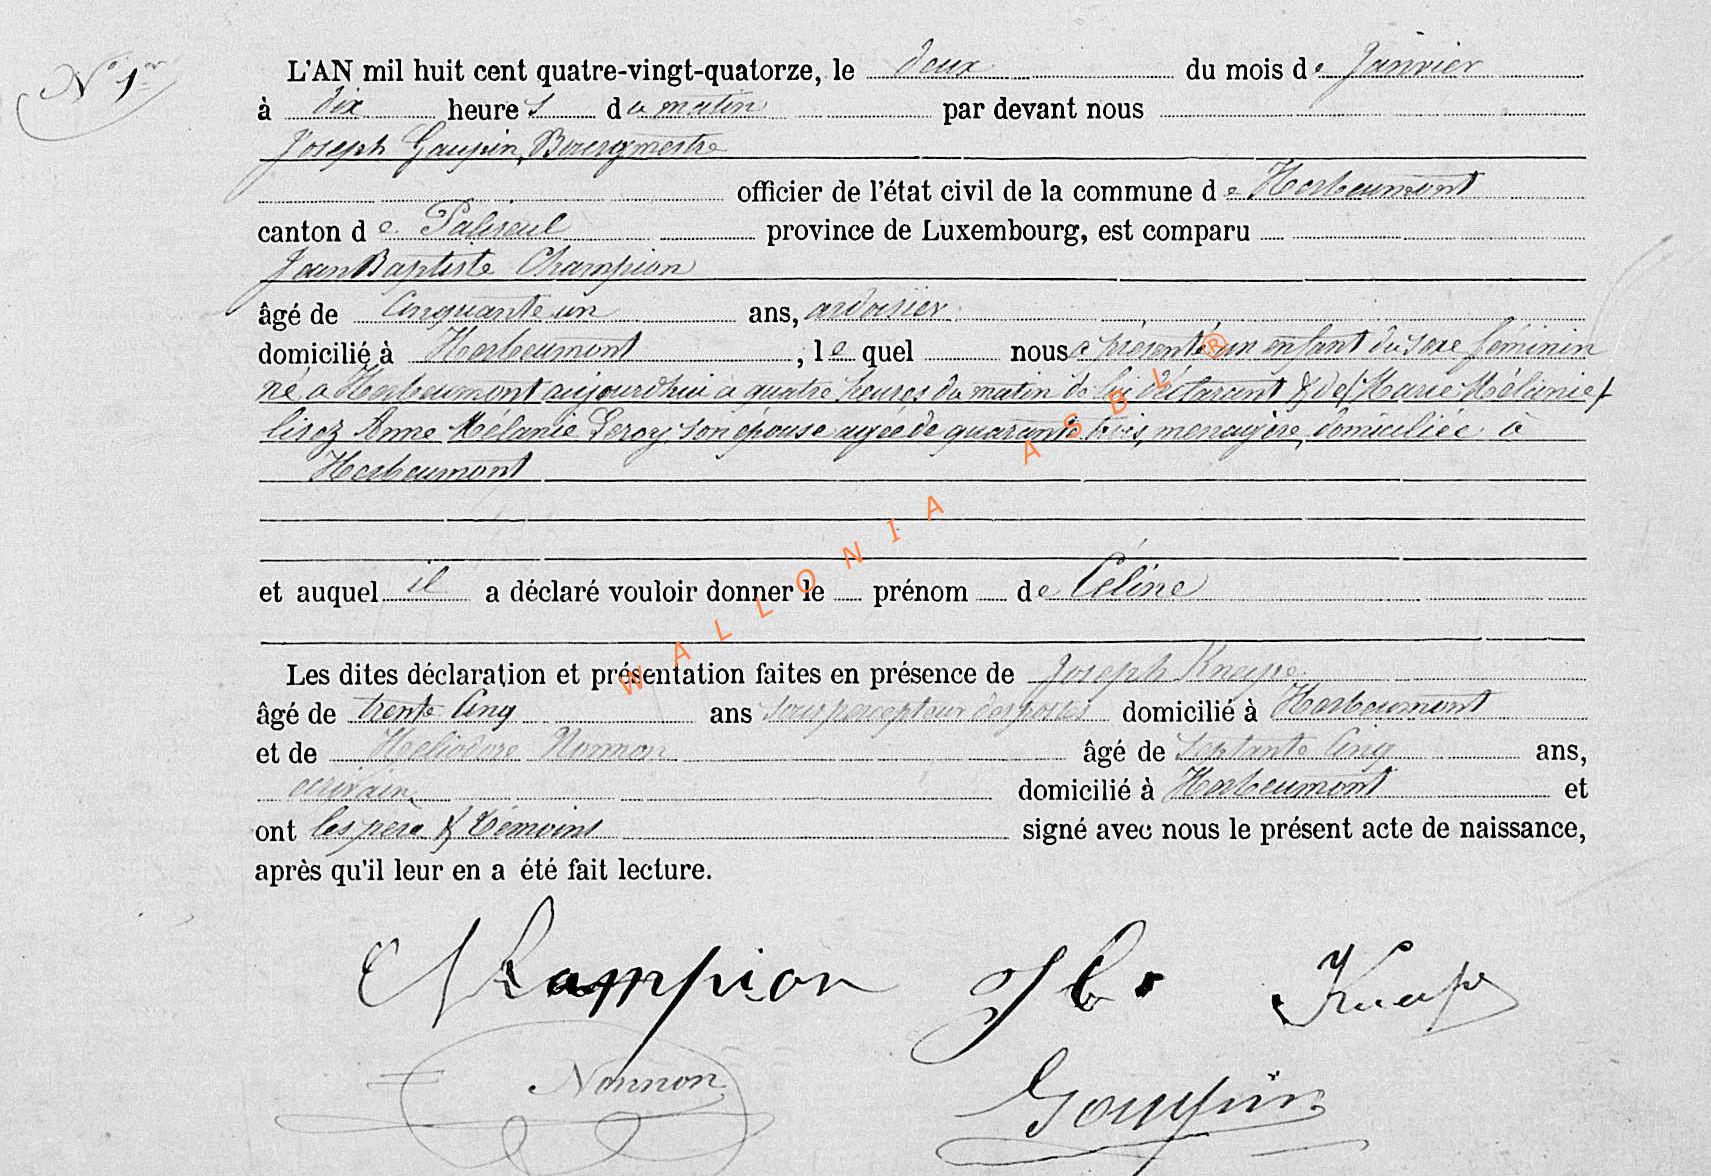 N° 1er
L'AN mil huit cent quatre-vingt-quatorze, le deux du mois de Janvier
à dix heures du matin par devant nous
Joseph Goupin, Bourgmestre
officier de l'état civil de la commune de Herbeumont
canton de Paliseul province de Luxembourg, est comparu
Jean Baptiste Champion
âgé de Cinquante un ans, ardoisier
domicilié à Herbeumont, lequel nous a présenté un enfant du sexe féminin
né à Herbeumont aujourdhui a quatre heures du matin de lui déclarant & de (Marie Mélanie)
lisez Anne Mélanie Leroy, son épouse agée de quarante trois, ménagère, domiciliée à
Herbeumont
et auquel il a déclaré vouloir donner le prénom de Céline
Les dites déclaration et présentation faites en présence de Joseph Kneipe
âgé de trente Cinq ans sous percepteur des postes domicilié à Herbeumont
et de Héliodore Nonnon âgé de septante Cinq ans,
écrivain domicilié à Herbeumont et
ont les père & témoins signé avec nous le présent acte de naissance,
après qu'il leur en a été fait lecture.
Champion J b. Kneip
Nonnon Goupin
WALLONIA ASBL ®